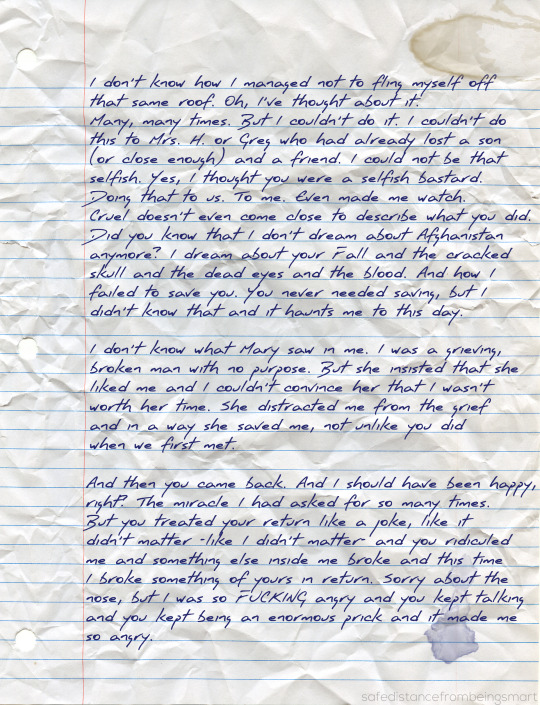 I don't know how I managed not to fling myself off
that same roof. Oh, I've thought about it.
Many, many times. But I couldn't do it. I couldn't do
this to Mrs. H. or Greg who had already lost a son
(or close enough) and a friend. I could not be that
selfish. Yes, I thought you were a selfish bastard.
Doing that to us. To me. Even made me watch.
Cruel doesn't even come close to describe what you did.
Did you know that I don't dream about Afghanistan
anymore? I dream about your Fall and the cracked
skull and the dead eyes and the blood. And how I
failed to save you. You never needed saving, but I
didn't know that and it haunts me to this day.
I don't know what Mary saw in me. I was a grieving,
broken man with no purpose. But she insisted that she
liked me and I couldn't convince her that I wasn't
worth her time. She distracted me from the grief
and in a way she saved me, not unlike you did
when we first met.
And then you came back. And I should have been happy,
right? The miracle I had asked for so many times.
But you treated your return like a joke, like it
didn't matter -like I didn't matter- and you ridiculed
me and something else inside me broke and this time
I broke something of yours in return. Sorry about the
nose, but I was so FUCKING angry and you kept talking
and you kept being an enormous prick and it made me
so angry.
safedistancefrombeingsmart